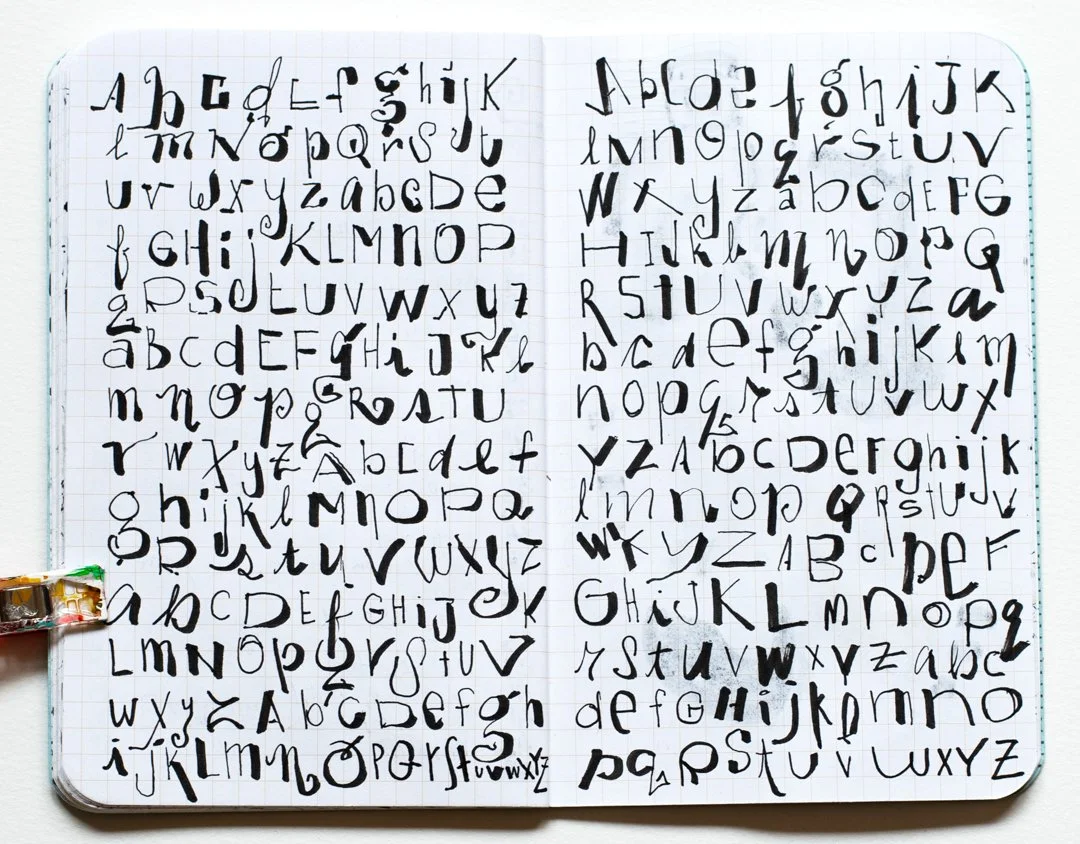 A b C d E f g h i j K
l m N o p Q r S t
u v w x y z a b c D e
f G H i j K L M n O P
q R S t U V W x y z
a B C d E F g H i J K l
m n o p q R s T U
v w X y z A b C d e f
g h i j k l M n O P Q
R s t u V W X y z
a b C D E f G H i J K
L m N O p Q r S t U V
w x y z A b C D e f g h
i j k L m n O P Q r S t u v w x Y Z
A b C d e f g h i J K
l M n O p q r S t U V
W x y z a b C d E F G
H I J k l m n O p Q
R S t U V w x y Z a
b c d e f g h i j K l m
n o p q r s t U v w x
y z A b C D e F g h i j k
l m n o p Q R S t U v
w x y Z A B c D e F
G H i J K L m n o p q
r S t u v w x v z a b c
d e f G H i j k l m n O
p q R S t U v W X Y Z